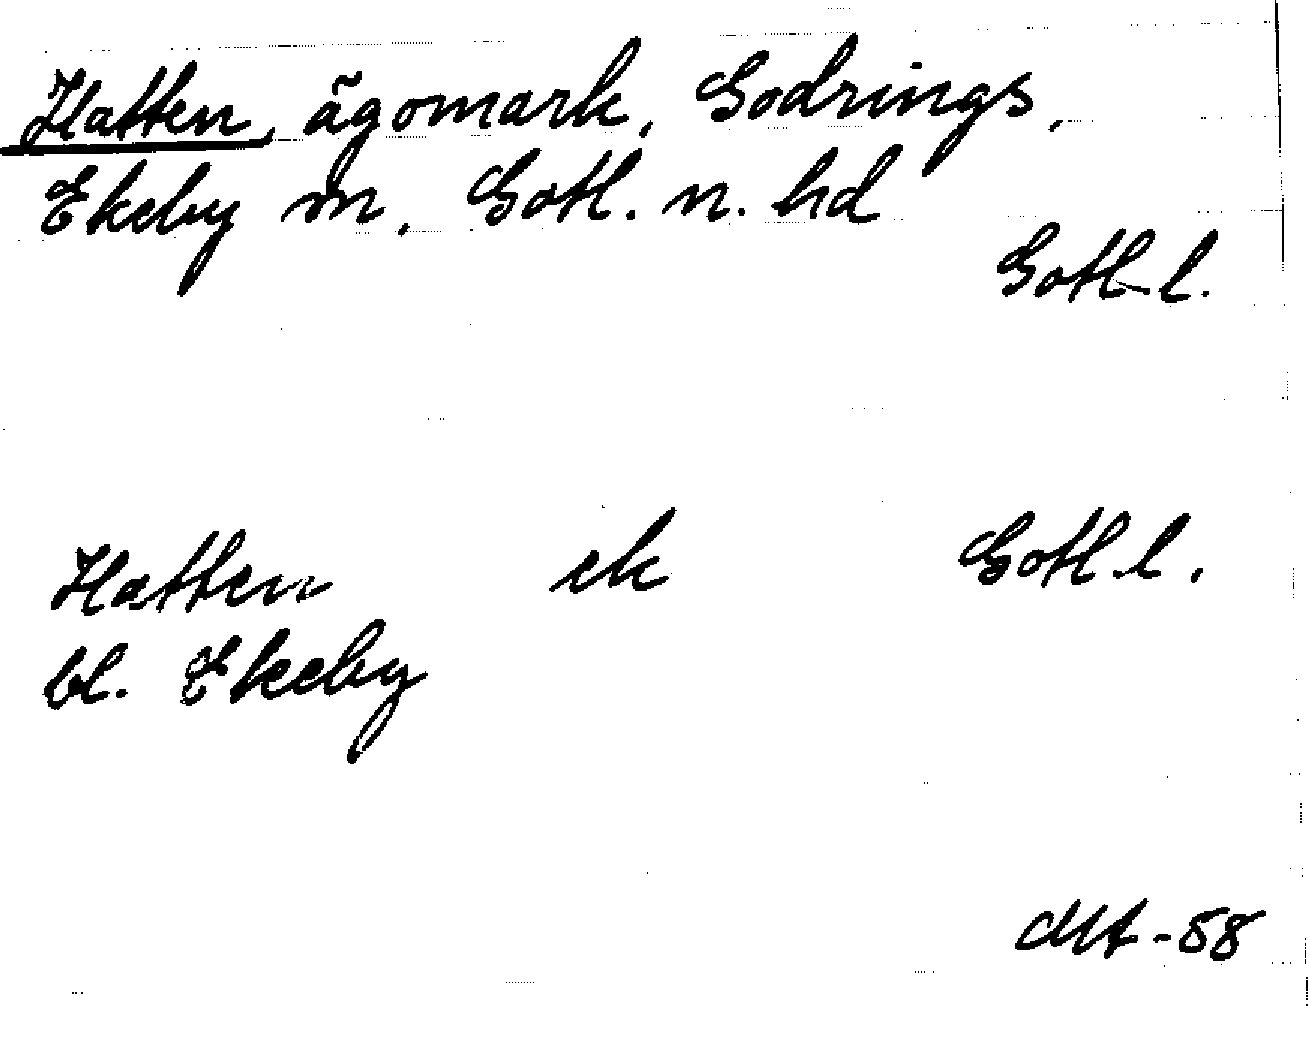 Hatten, ägomark, Godrings,
Ekeby sn, Gotl. n. hd
Gotl. l.
Hatten ek Gotl. l.
bl. Ekeby
-58